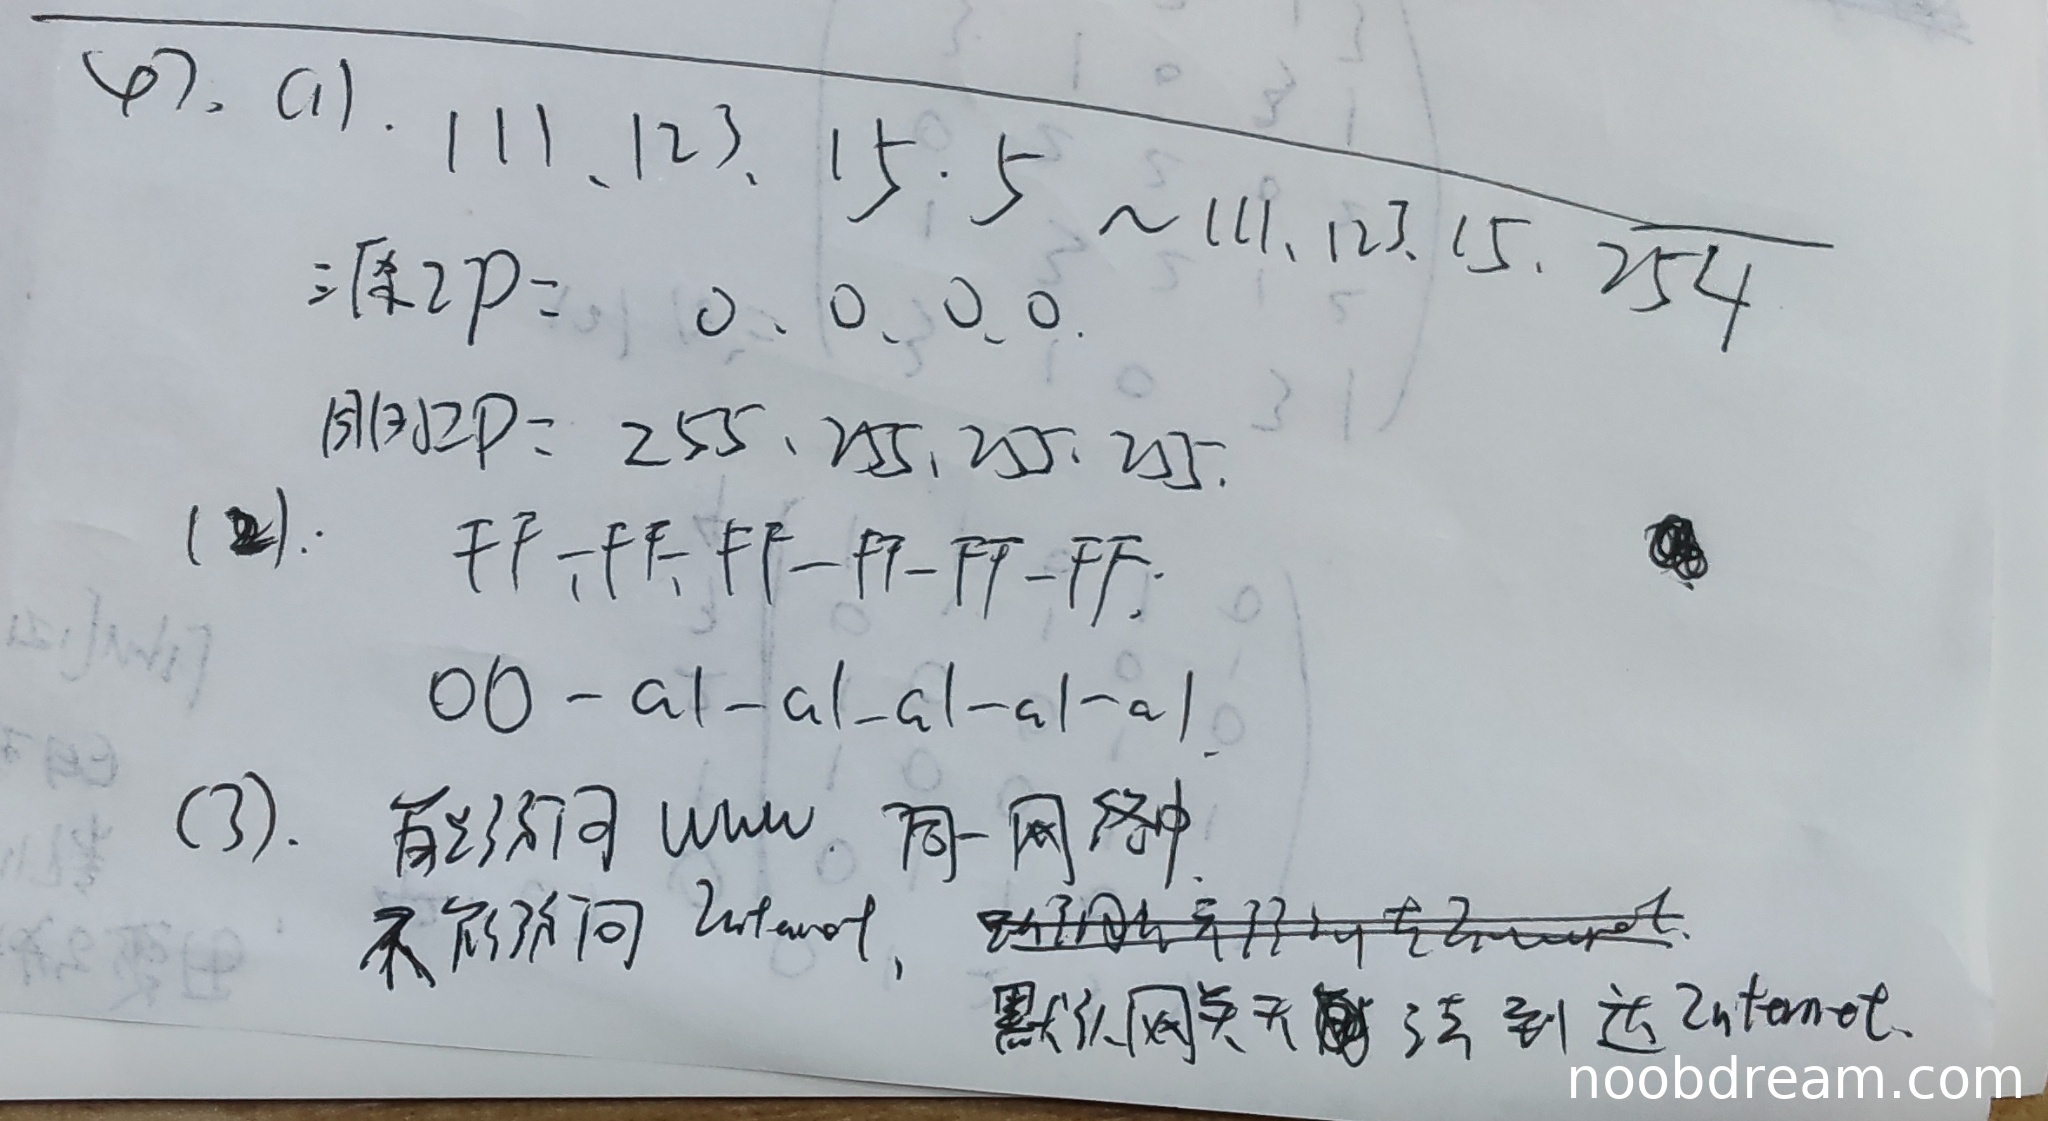 47. (1). 111.123.15.5 ~ 111.123.15.254
源IP= 0.0.0.0.
目的IP= 255.255.255.255.
(2). FF-FF-FF-FF-FF-FF.
00-a1-a1-a1-a1-a1.
(3). 能访问 WWW. 同一网络中.
不能访问 Internet,
默认网关无法到达Internet.
noobdream.com